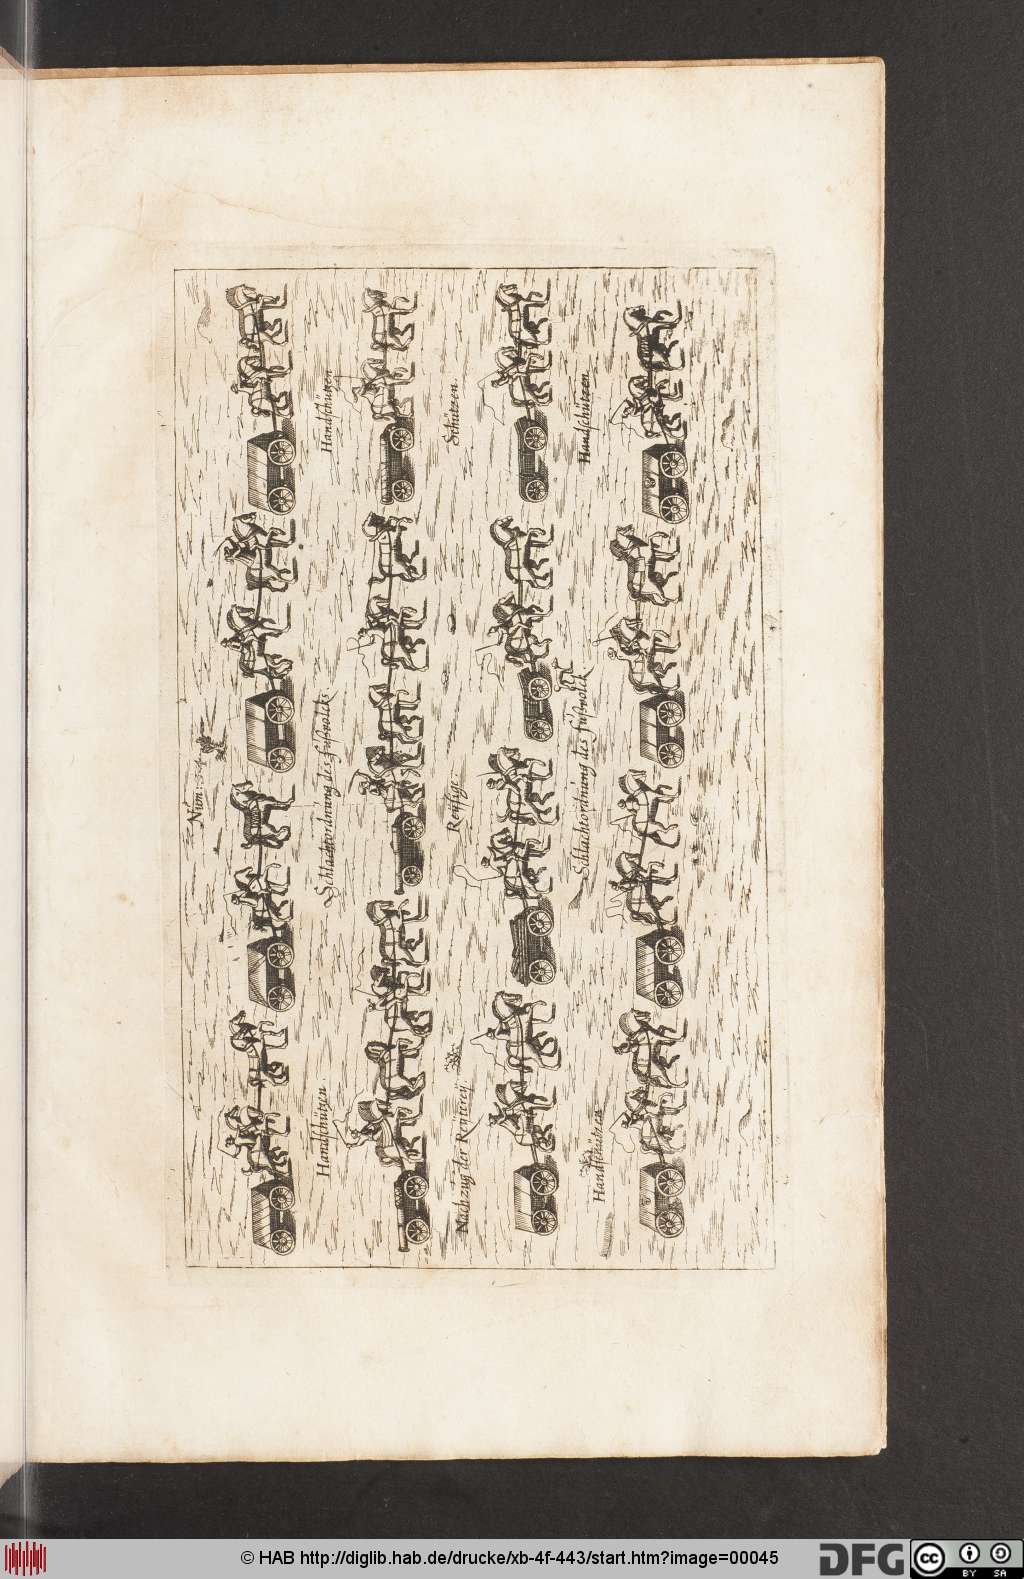 Num: 34
Handschützen
Schlachtordnung des fußvolcks
Handschützen
Schützen.
Reysige.
Nachzug der Reuterey.
Handschützen
Schlachtordnung des fußvolck
Handschützen
© HAB http://diglib.hab.de/drucke/xb-4f-443/start.htm?image=00045
DFG
cc
BY
SA